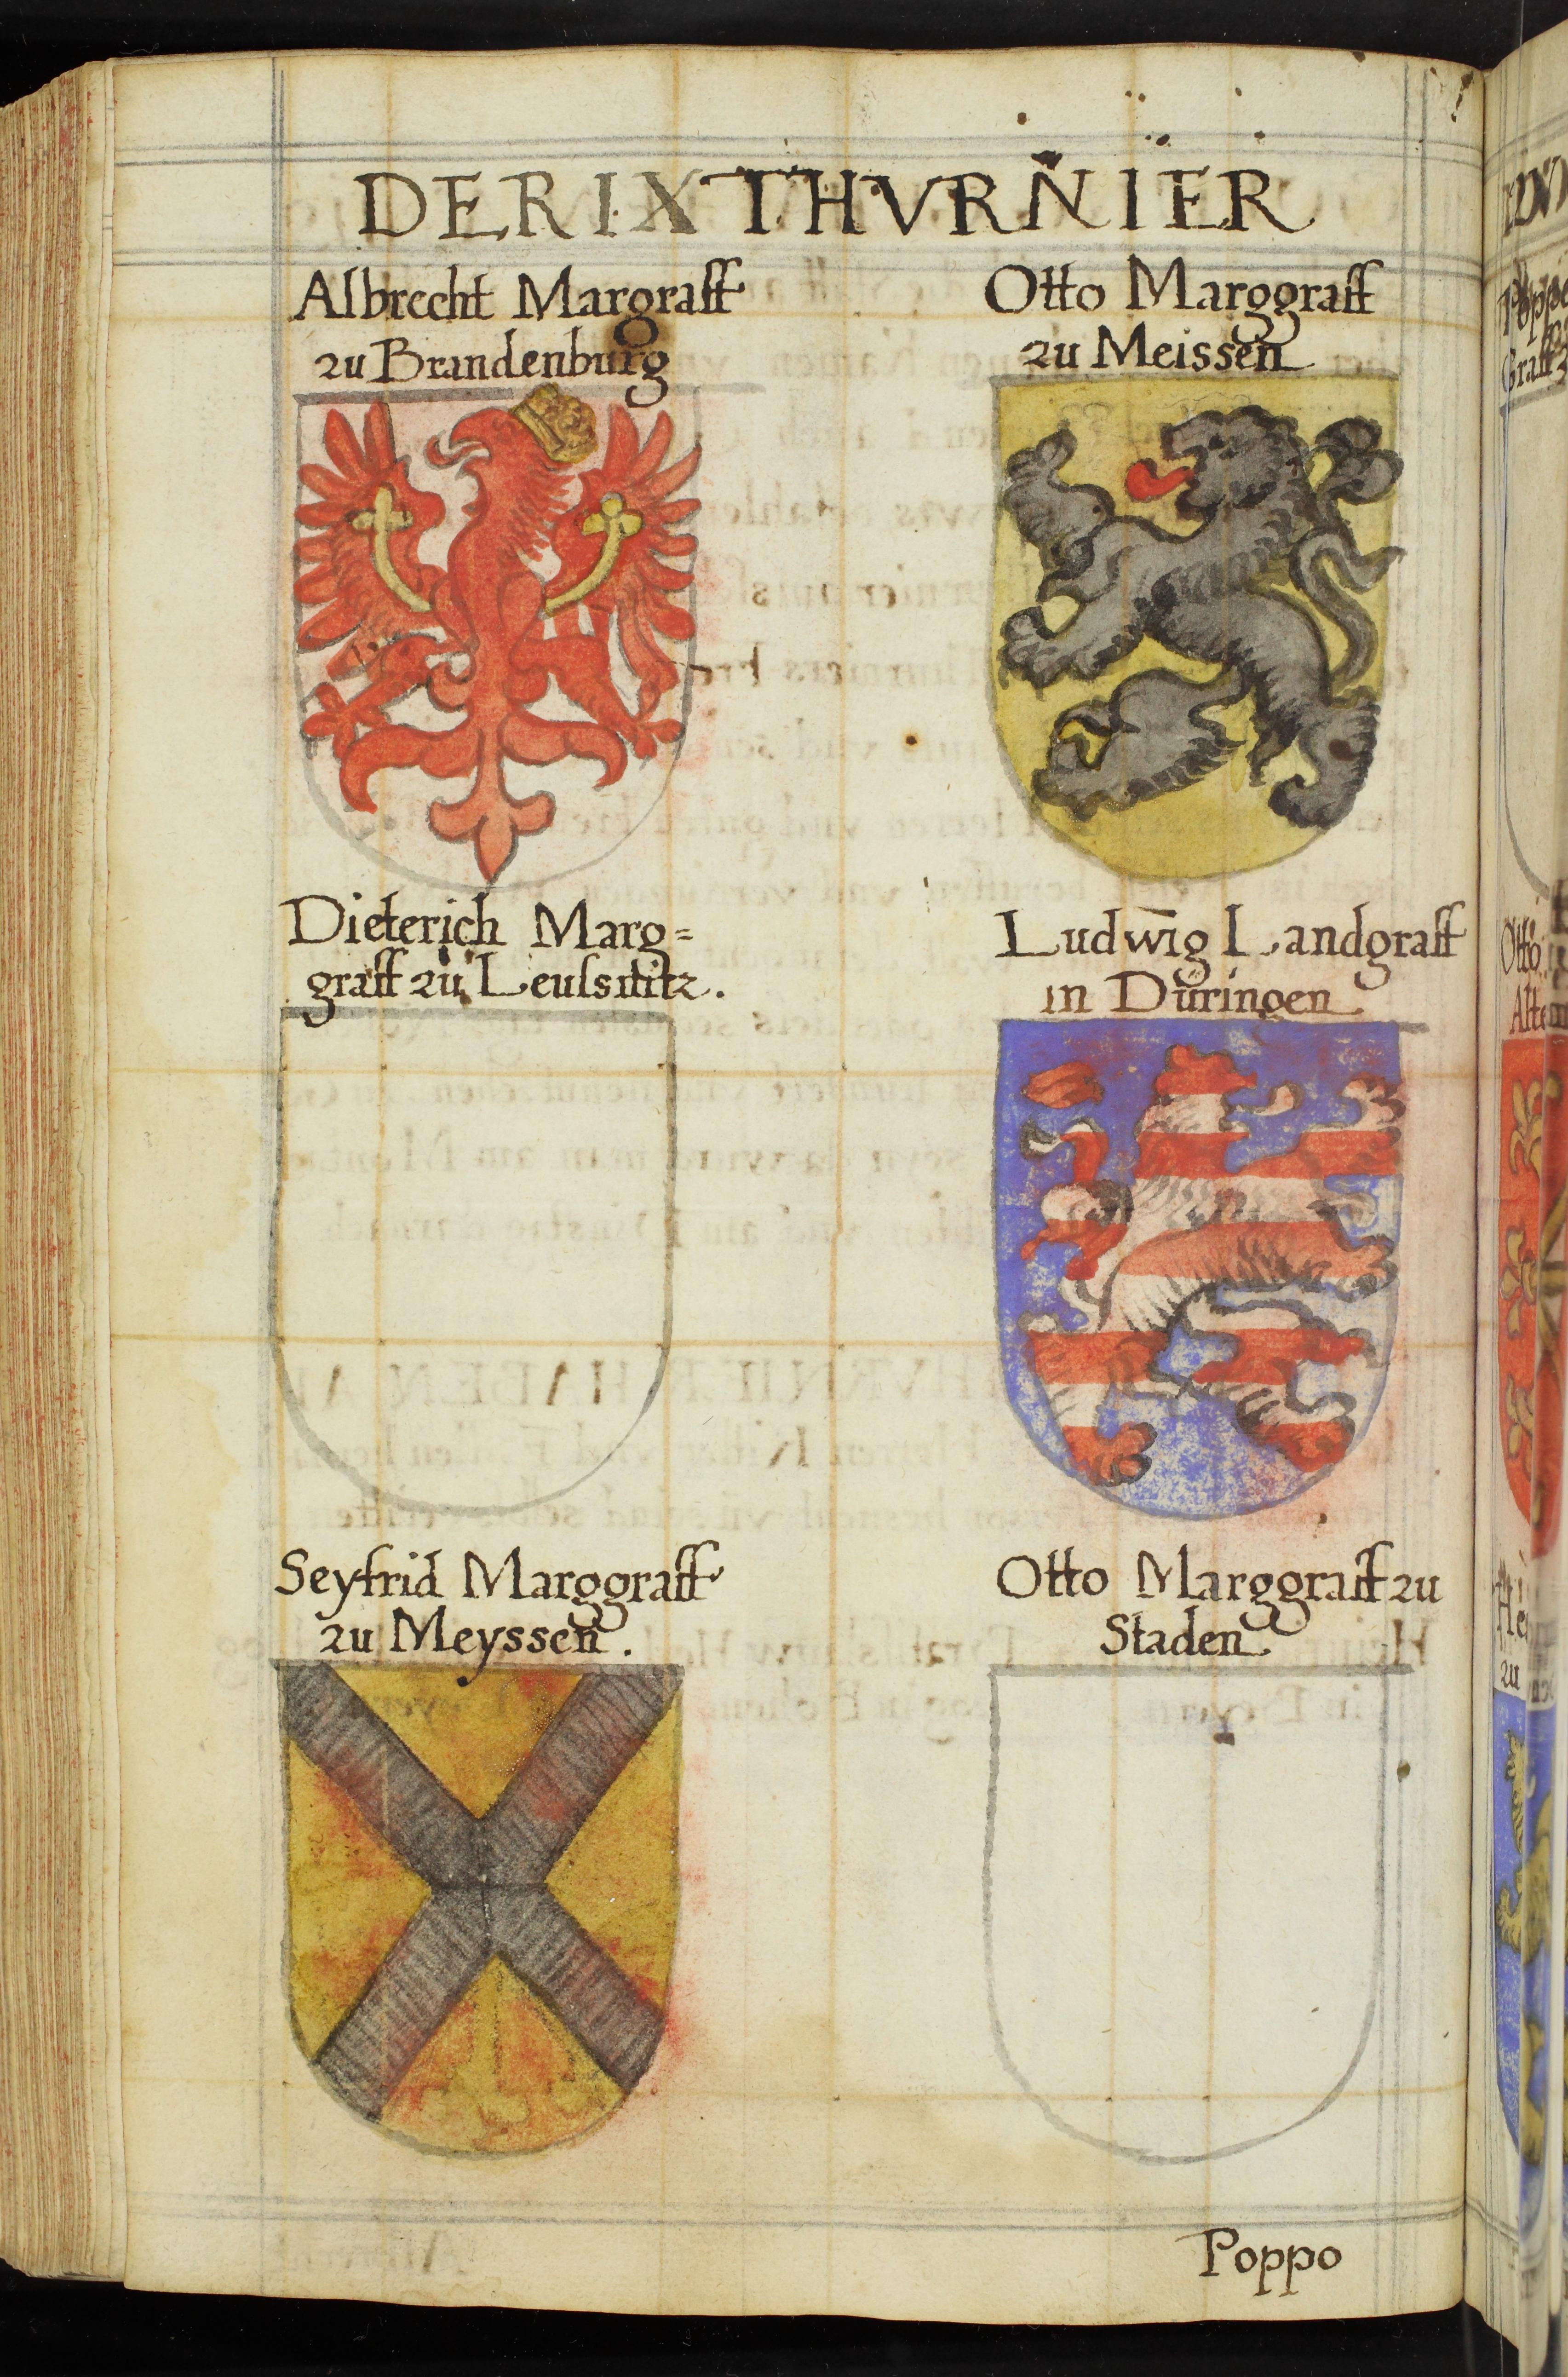 DER IX THVRNIER
Albrecht Margraff
zu Brandenburg
Otto Marggraff
zu Meissen
Dieterich Marg=
graff zu Leulsnitz.
Ludwig Landgraff
in Düringen
Seyfrid Marggraff
zu Meyssen.
Otto Marggraff zu
Staden
Poppo